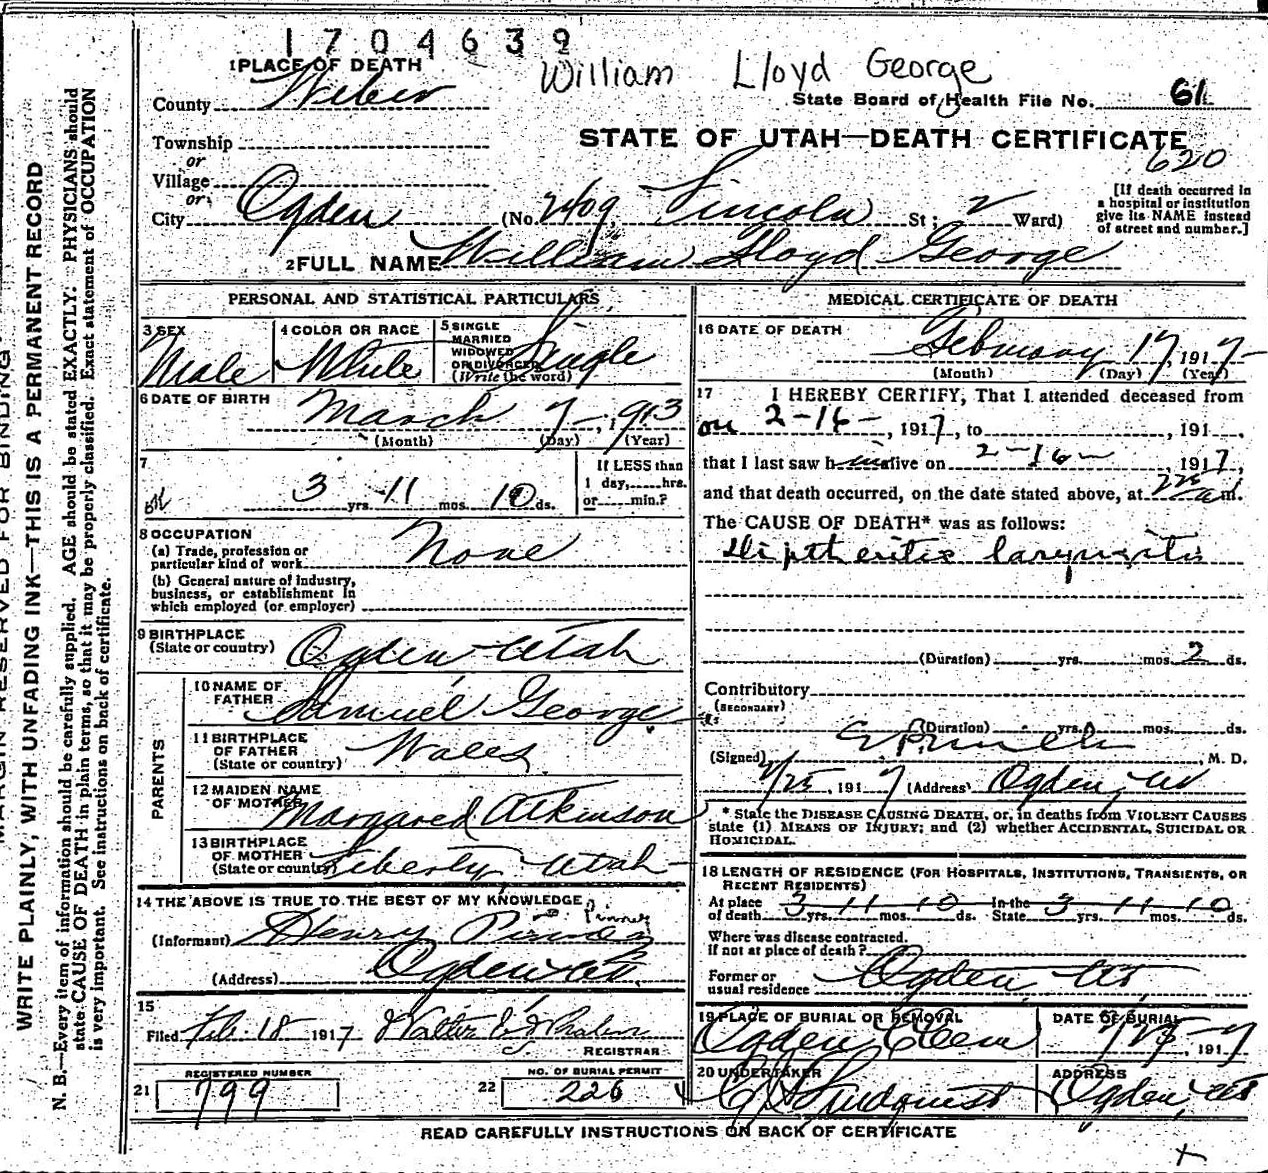 1704639
William Lloyd George
1 PLACE OF DEATH
County Weber
State Board of Health File No. 61
STATE OF UTAH—DEATH CERTIFICATE
620
Township
or
Village
or
City Ogden (No. 2409 Lincoln St; 2 Ward)
[If death occurred in
a hospital or institution
give its NAME instead
of street and number.]
2 FULL NAME William Lloyd George
PERSONAL AND STATISTICAL PARTICULARS
3 SEX
Male
4 COLOR OR RACE
White
5 SINGLE
MARRIED
WIDOWED
OR DIVORCED
(Write the word)
Single
6 DATE OF BIRTH
March 7, 1913
(Month) (Day) (Year)
7
3 yrs. 11 mos. 10 ds.
If LESS than
1 day,.....hrs.
or.....min.?
8 OCCUPATION
(a) Trade, profession or
particular kind of work
None
(b) General nature of industry,
business, or establishment in
which employed (or employer)
9 BIRTHPLACE
(State or country)
Ogden Utah
PARENTS
10 NAME OF
FATHER
Samuel George
11 BIRTHPLACE
OF FATHER
(State or country)
Wales
12 MAIDEN NAME
OF MOTHER
Margared Atkinson
13 BIRTHPLACE
OF MOTHER
(State or country)
Liberty, Utah
14 THE ABOVE IS TRUE TO THE BEST OF MY KNOWLEDGE
(Informant) Henry
(Address) Ogden Ut
15
Filed Feb. 18 1917 Walter
REGISTRAR
REGISTERED NUMBER
21 799
NO. OF BURIAL PERMIT
22 226
MEDICAL CERTIFICATE OF DEATH
16 DATE OF DEATH
February 17, 1917
(Month) (Day) (Year)
17 I HEREBY CERTIFY, That I attended deceased from
on 2-16-, 1917, to , 191 .
that I last saw him alive on 2-16-, 1917,
and that death occurred, on the date stated above, at m.
The CAUSE OF DEATH* was as follows:
Diptheritic laryngitis
(Duration) yrs. mos. 2 ds.
Contributory
(SECONDARY)
(Duration) yrs. mos. ds.
(Signed) , M. D.
2/25, 1917 (Address) Ogden, Ut
* State the DISEASE CAUSING DEATH, or, in deaths from VIOLENT CAUSES
state (1) MEANS OF INJURY; and (2) whether ACCIDENTAL, SUICIDAL OR
HOMICIDAL.
18 LENGTH OF RESIDENCE (FOR HOSPITALS, INSTITUTIONS, TRANSIENTS, OR
RECENT RESIDENTS)
At place
of death 3 yrs. 11 mos. 10 ds.
In the
State 3 yrs. 11 mos. 10 ds.
Where was disease contracted.
If not at place of death?
Former or
usual residence Ogden Ut,
19 PLACE OF BURIAL OR REMOVAL
Ogden Cem
DATE OF BURIAL
2/25, 1917
20 UNDERTAKER
Lindquist
ADDRESS
Ogden, Ut
READ CAREFULLY INSTRUCTIONS ON BACK OF CERTIFICATE
MARGIN RESERVED FOR BINDING
WRITE PLAINLY, WITH UNFADING INK—THIS IS A PERMANENT RECORD
N. B.—Every item of information should be carefully supplied. AGE should be stated EXACTLY. PHYSICIANS should
state CAUSE OF DEATH in plain terms, so that it may be properly classified. Exact statement of OCCUPATION
is very important. See instructions on back of certificate.